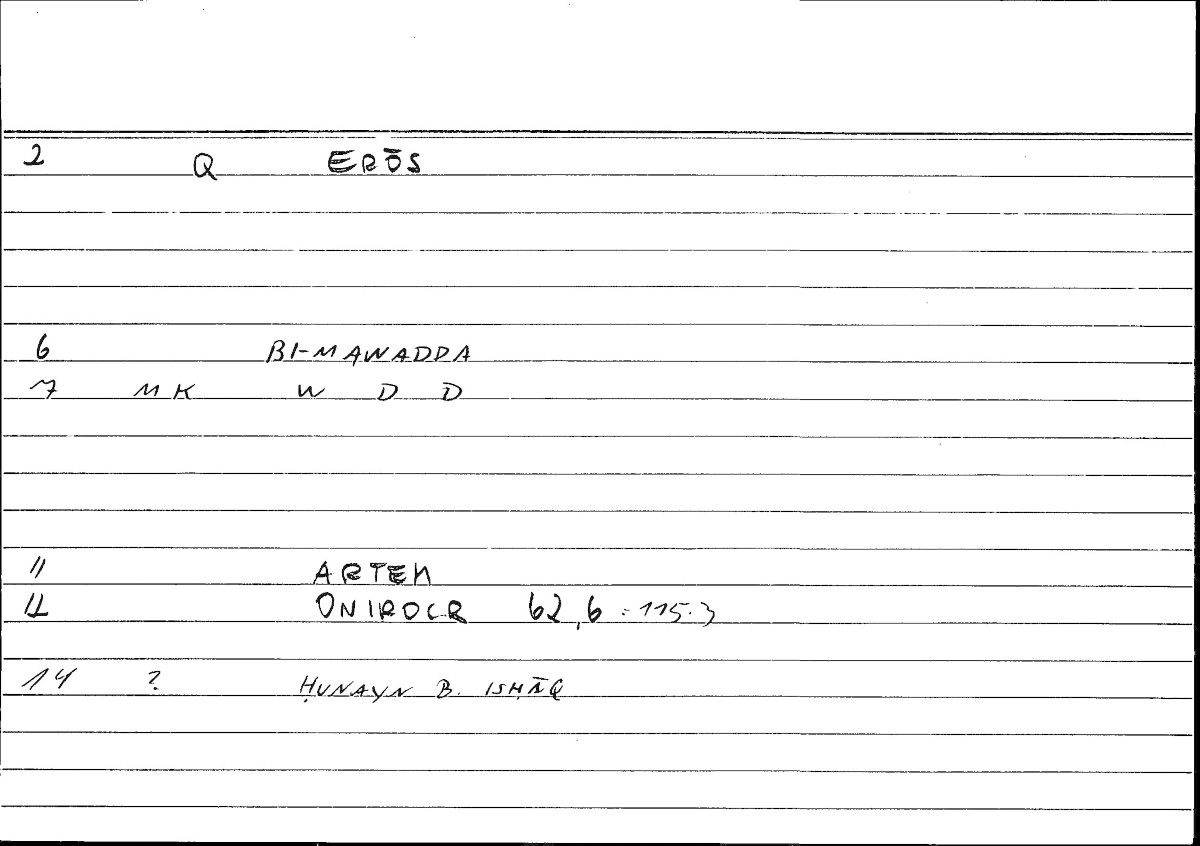 2 Q ERŌS
6 BI-MAWADDA
7 MK W D D
11 ARTEM
12 ONIROCR 62,6 = 115.3
14 ? ḤUNAYN B. ISḤĀQ